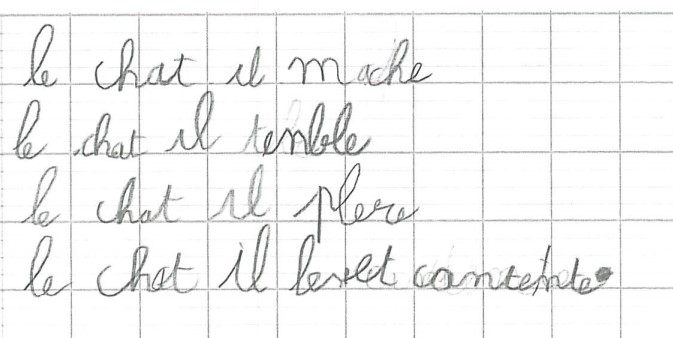 le chat il mache
le chat il tenble
le chat il plere
le chat il contente